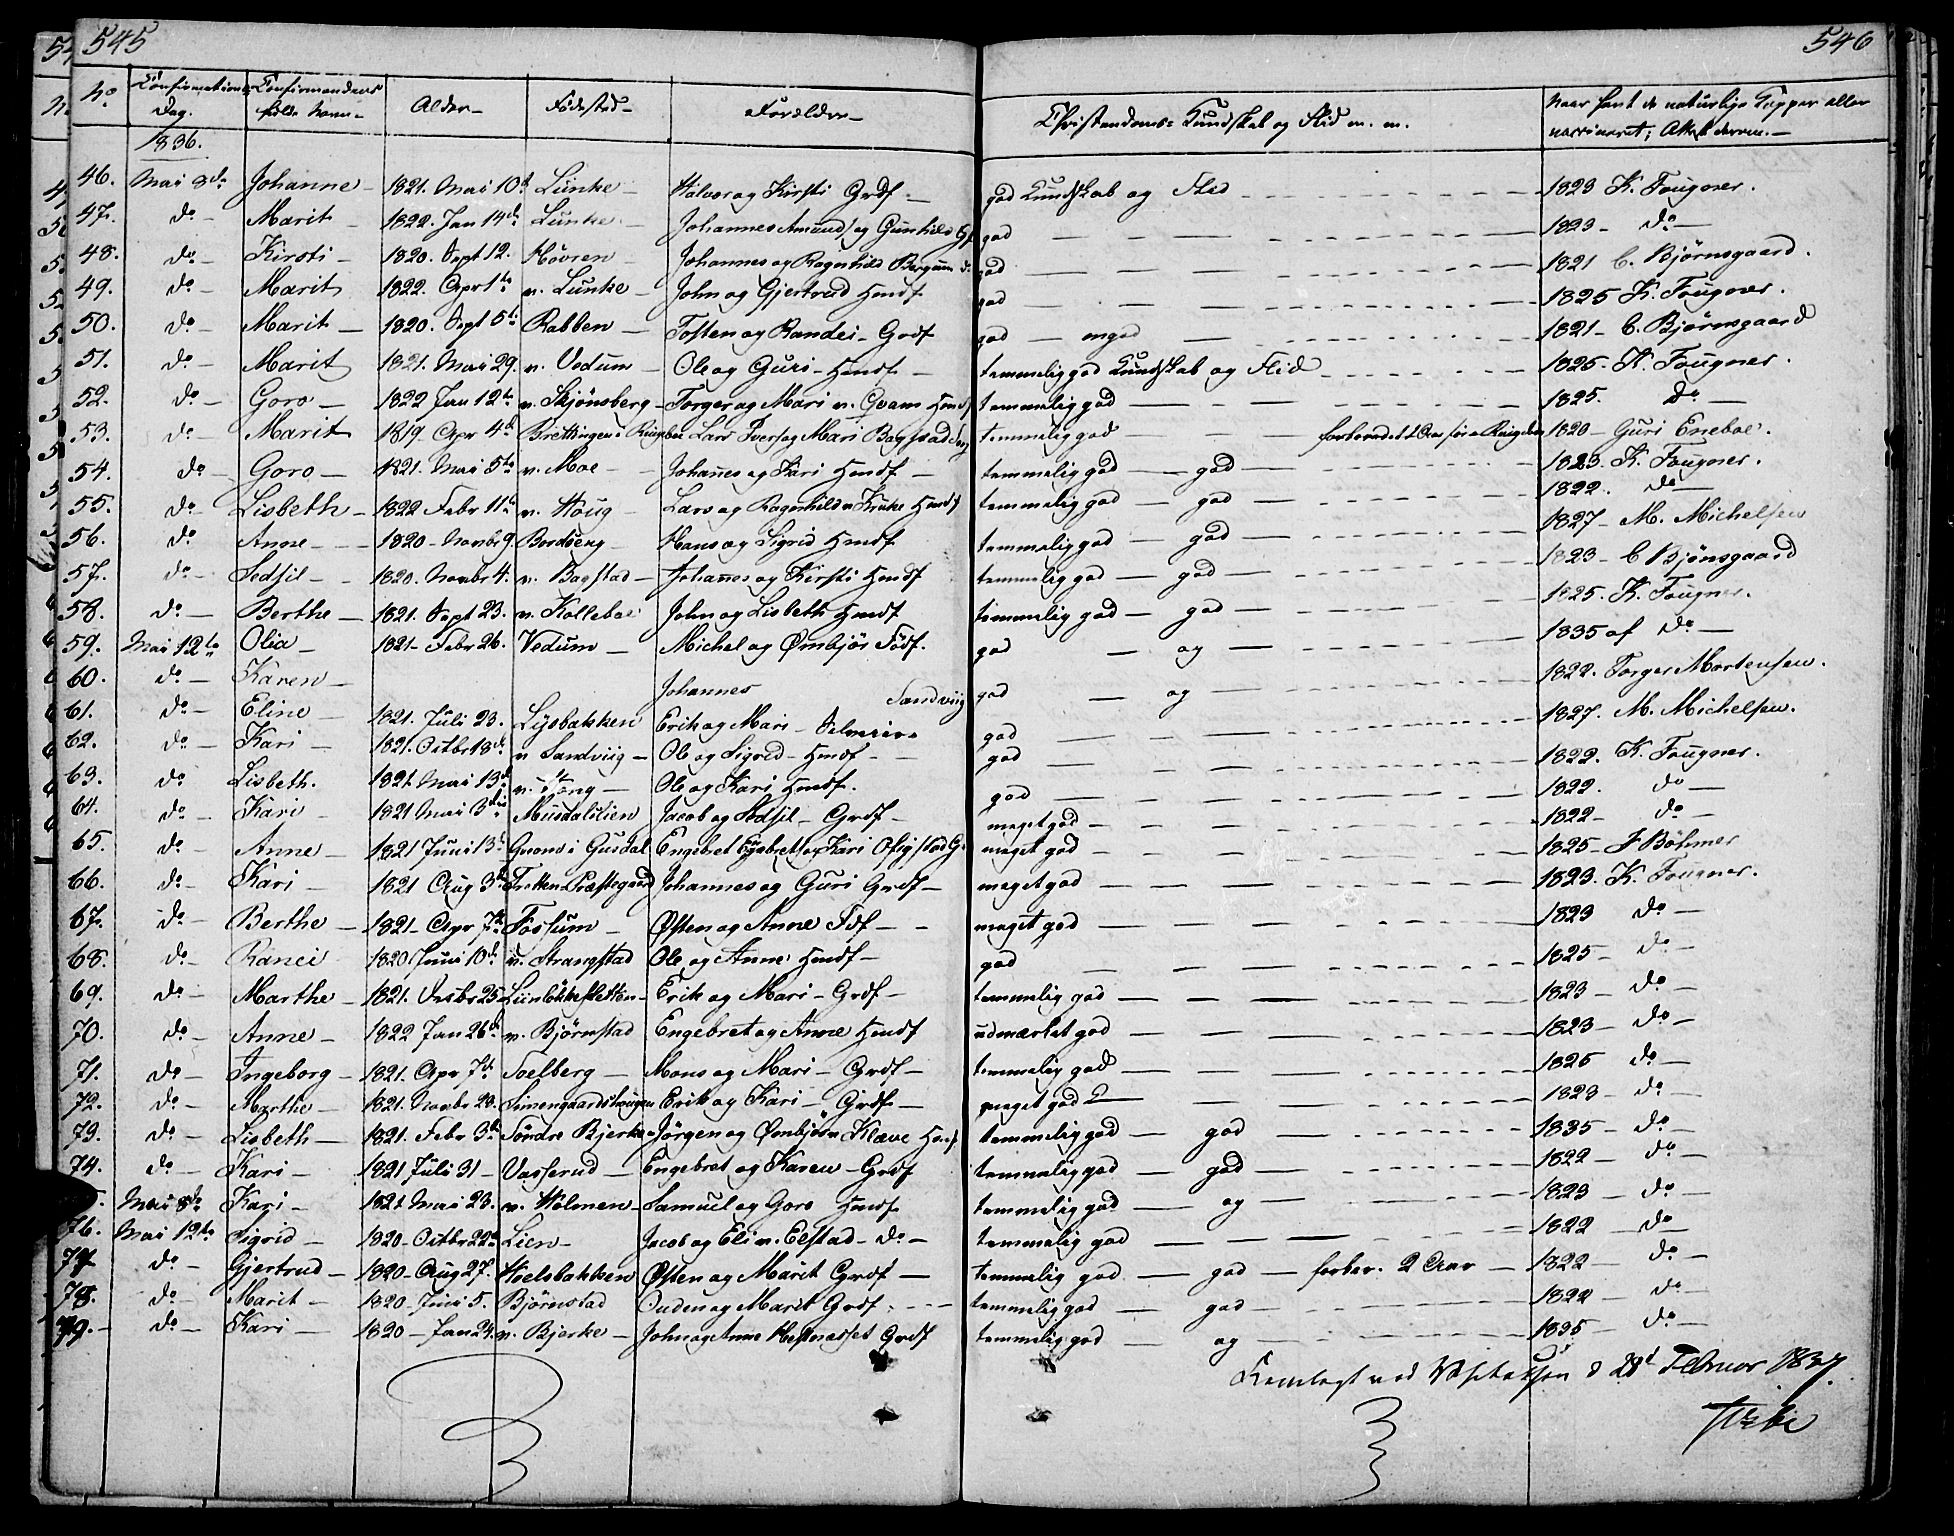 545
546
No Confirmations Dag. Confirmandens fulde Navn Alder Fødested Forældre Christendoms-Kundskab og Flid m. m. Naar havt de naturlige Kopper eller vaccineret; Attest derom.
1836.
46. Mai 8de Johanne 1821. Mai 10d Lunke Halvor og Kirsti Grdf god Kundskab og Flid 1823 K. Fougner.
47. do Marit 1822. Jan 14de Lunke Johannes Amunds og Gunhild god 1823 do
48. do Kirsti 1820. Sept 12. Høvren Johannes og Ragnhild god 1821 C. Bjørnsgaard.
49. do Marit 1822. Apr 1te v. Lunke John og Gjertrud Hmdf god 1825 K. Fougner.
50. do Marit 1820. Sept 5te Rabben Tosten og Randei Grdf god megd 1821 C. Bjørnsgaard
51. do Marit 1821. Mai 29. v. Vedum Ole og Guri Hmdf temmelig god Kundskab og Flid 1825. K. Fougner.
52. do Goro 1822 Jan 12te v. Skjønsberg Torger og Mari v. Qvam Hmdf temmelig god 1825. Do
53. do Marit 1819. Apr 4de Brettingen i Ringebu Lars Ivers og Mari temmelig god 1820 Guri Eneboe.
54. do Goro 1821. Mai 5te v. Moe Johanes og Kari Hmdf temmelig god god 1823. K. Fougner.
55. do Lisbeth 1822 Febr 11te v. Houg Lars og Ragnhild v. Hmdf temmelig god god 1822. do
56. do Anne 1820 Novbr 9. Bordseng Hans og Sigrid Hmdf temmelig god god 1827 M. Michelsen
57. do Sedsil 1820. Novbr 4. v. Bagstad Johanes og Kirsti Hmdf temmelig god god 1823 C Bjönsgaard
58. do Berthe 1821. Sept 23. v. Kolleboe John og Lisbeth Hmdf temmelig god god 1825. K. Fougner.
59. Mai 12te Olia 1821 Febr 26. Vedum Michel og Ømbjör Födf. god og 1835 af do
60. do Karen Johannes Sandviig god og 1822. Torger Mortensen.
61. do Eline 1821. Juli 23. Lysbakken Erik og Mari god 1827. M. Michelsen.
62. do Kari 1821. Octbr 18de v Sandviig Ole og Sigrid Hmdf god 1822. K. Fougner.
63. do Lisbeth. 1821. Mai 13de v. Ole og Kari Hmdf. god 1822. do
64. do Kari 1821 Mai 3die Musdalslien Jacob og Sedsil Grdf meget god 1822 do
65. do Anne 1821 Juni 13de i Gusdal Engebret og Kari Oligstad meget god 1825 J Böhmer
66. do Kari 1821 Aug 3de Præstegaard Johannes og Guri Grdf meget god 1823. K. Fougner.
67. do Berthe 1821 Apr 7de Fossum Østen og Anne Fdf meget god 1823 do
68. do Ranei 1820 Juni 10de v. Strangstad Ole og Anne Hmdf god 1825 do
69. do Marthe 1821. Desbr 25 Erik og Mari Grdf temmelig god 1823 do
70. do Anne 1822 Jan 26de v. Bjørnstad Engebret og Anne Hmdf udmærket god 1823 do
71. do Ingeborg 1821. Apr 7de Soelberg Mons og Mari Grdf temmelig god 1825 do
72. do Marthe 1821. Novbr 23. Simengaardshaugen Erik og Kari Grdf meget god 1823 do
73. do Lisbeth 1821. Febr 3de Søndre Bjerke Jørgen og Ømbjør v Klæve temmelig god god 1835 do
74. do Kari 1821 Juli 31 Vasserud Engebret og Karen Grdf temmelig god god 1822 do
Mai 8de Kari 1821 Mai 23. v. Holmen Samuel og Goro Hmdf temmelig god og 1823 do
76. Mai 12te Sigrid 1820 Octbr 22de Lien Jacob og Eli v. Elstad do temmelig god 1822 do
77. do Gjertrud 1820 Aug 27. Hoelsbakken Østen og Marit Grdf temmelig god god forber. 2 Aar 1822 do
78. do Marit 1820 Juni 5. Bjørnstad Ouden og Marit Grdf temmelig god god 1822 do
79. do Kari 1820 Jan 24. v. Bjerke John og Anne Grdf temmelig god og 1835 do
Fremlagt ved Visitatsen d 28d Februar 1837.